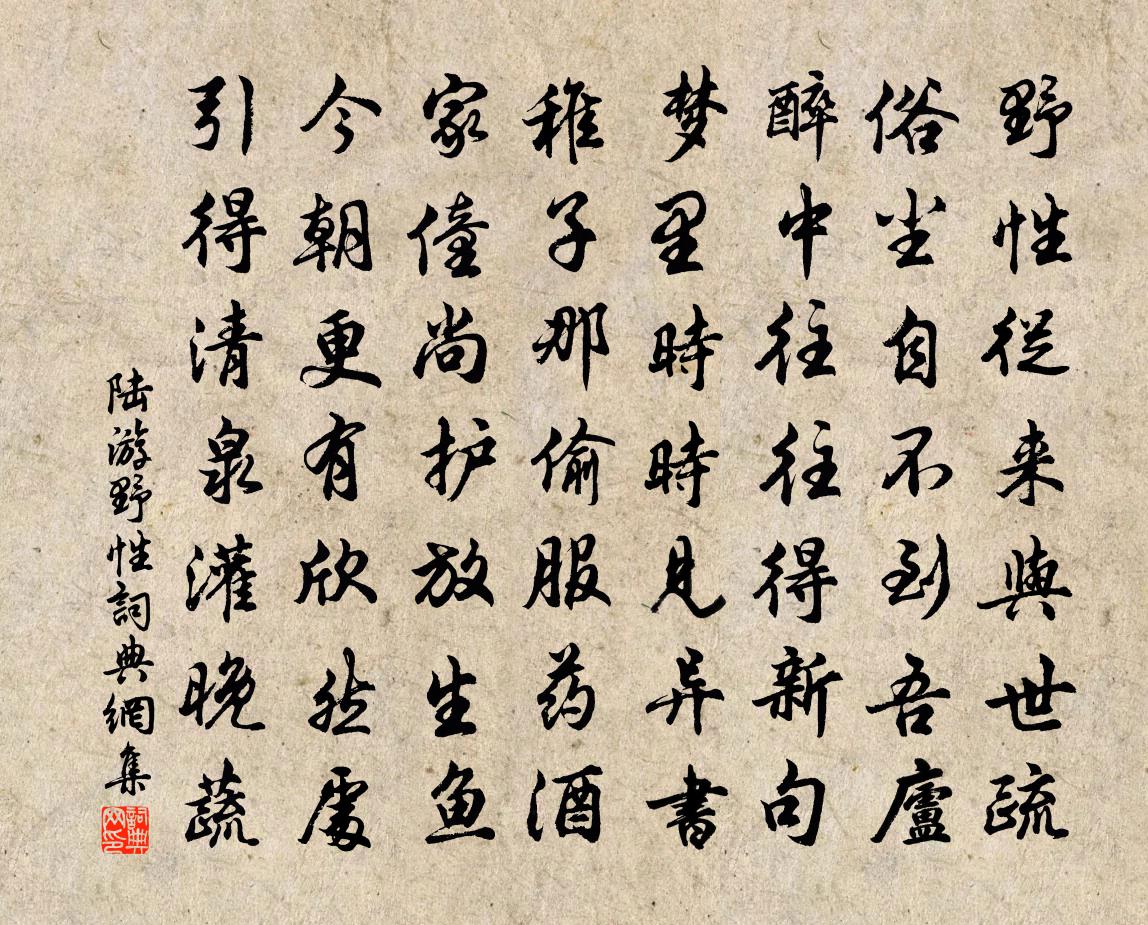 野性從来與世疏
俗尘自不到吾廬
醉中往往得新句
梦里時時見异書
稚子那偷服药酒
家僮尚护放生鱼
今朝更有欣然處
引得清泉灌晚蔬
陆游野性詞典網集
詞典网印